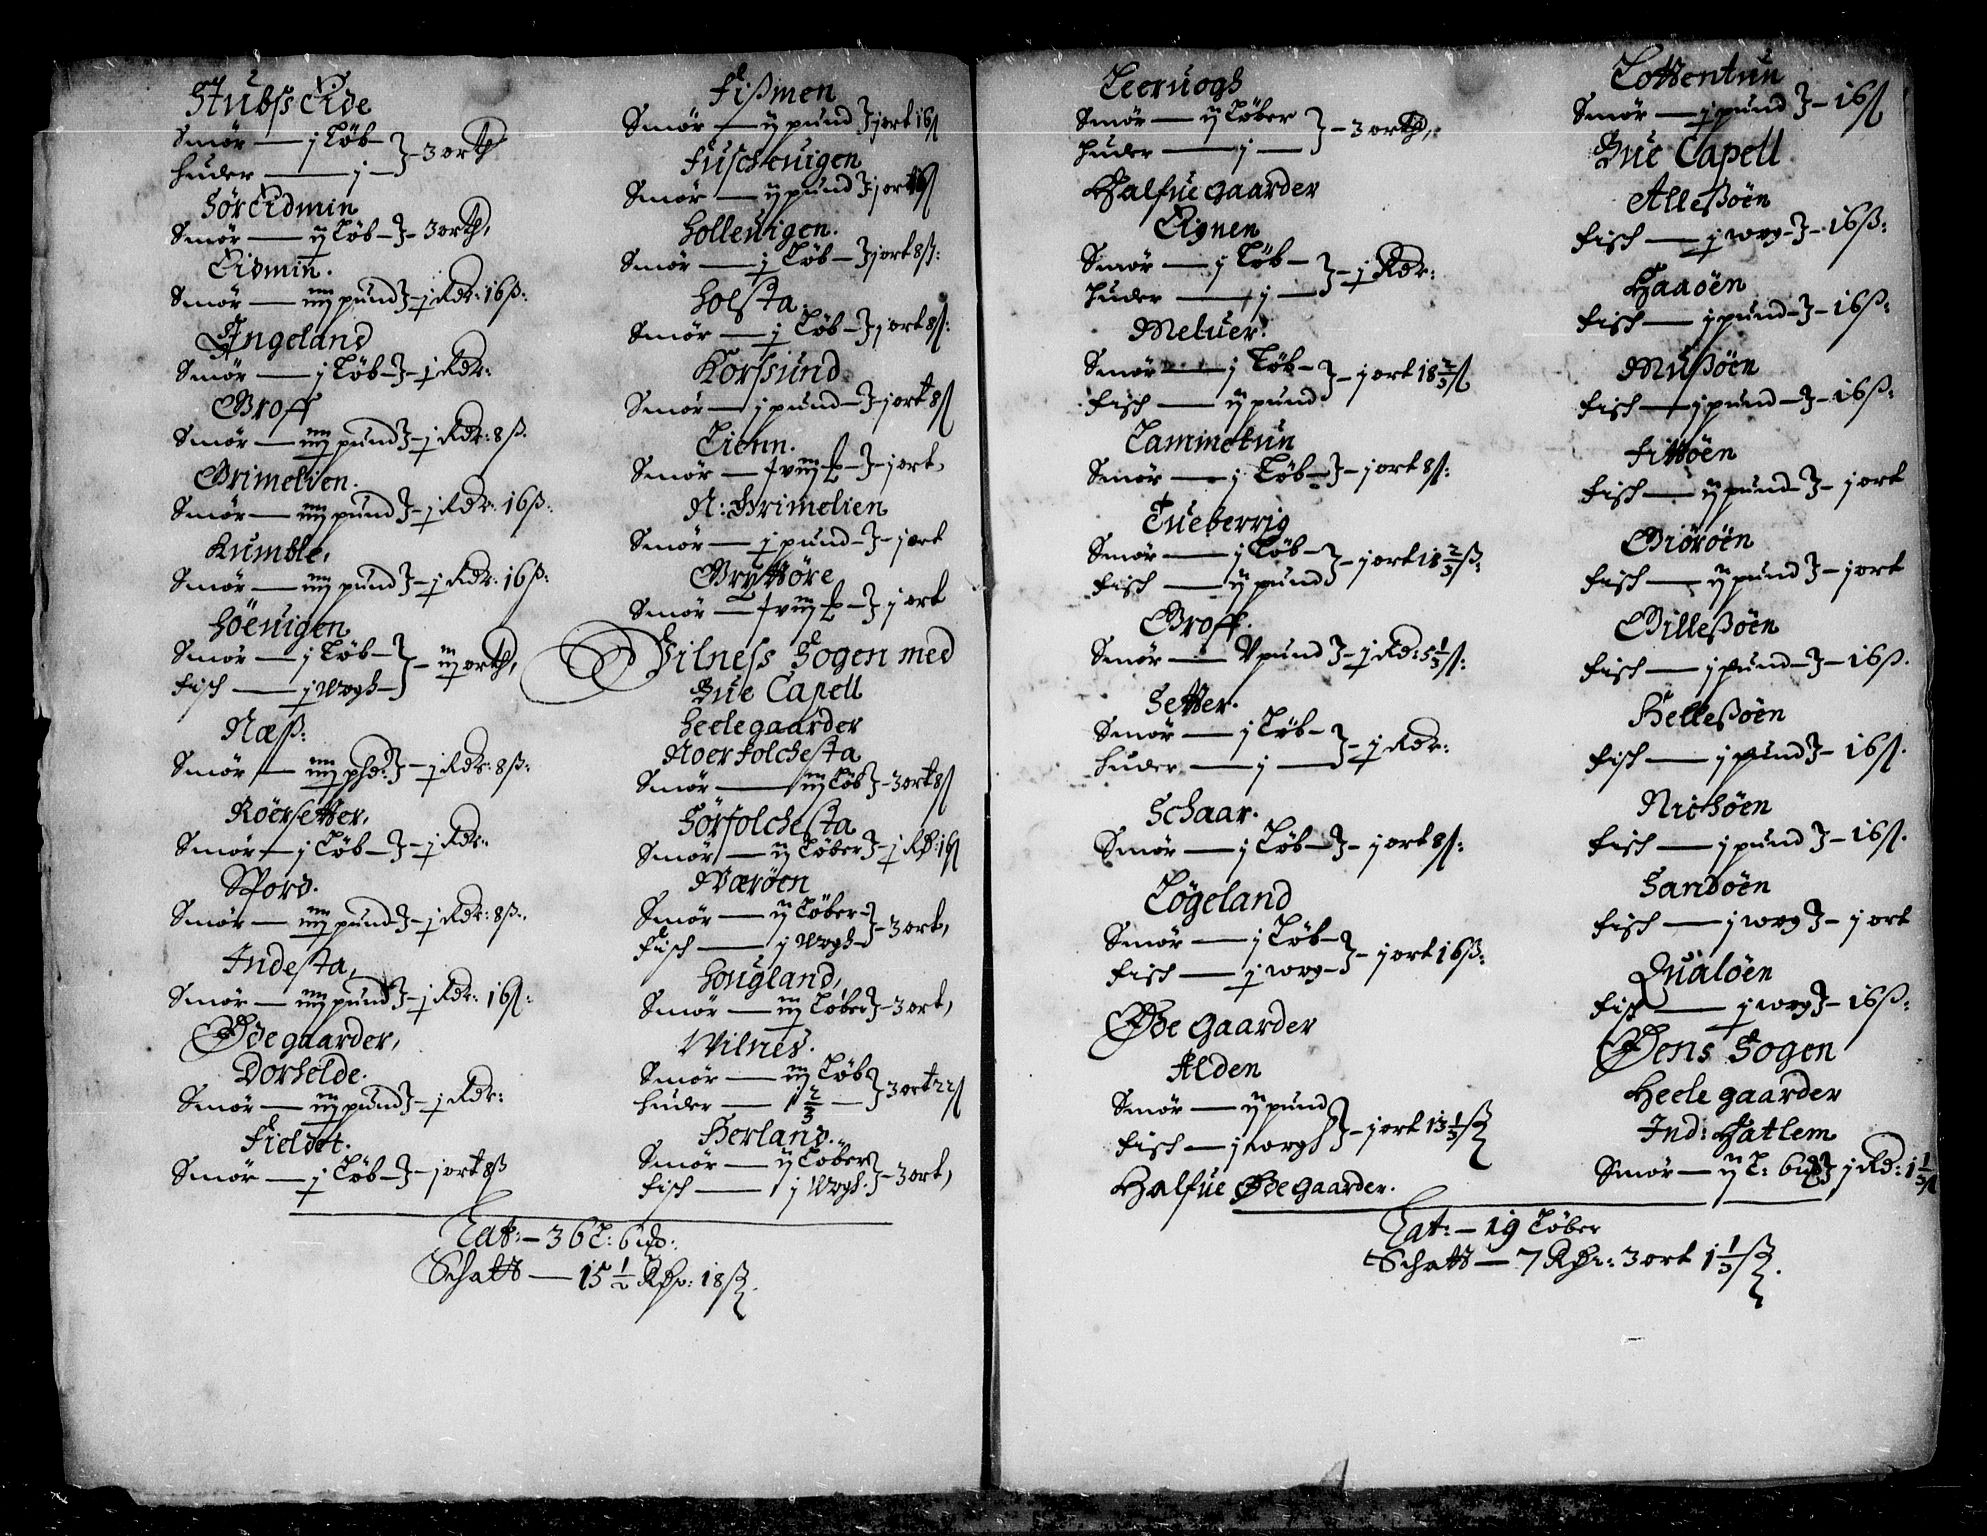 Stubss Eide
Smör — j Löb —
Huder — j — } 3 orth
Sör Eidmin
Smör — ij Löb — } 3 orth,
Eidmin.
Smör — iiij pund } j Rdr: 16 ß:
Angeland
Smör — j Löb } j Rdr:
Groff
Smör — iiij pund } j Rdr: 8 ß.
Grimelien.
Smör — iiij pund } j Rdr: 16 ß.
Kumble,
Smör — iiij pund } j Rdr: 16 ß:
Höeuigen
Smör — j Löb —
fisch — j Wogh — } iij orth,
Næss:
Smör — iiij phd: } j Rdr: 8 ß:
Röersetter,
Smör — j Löb } j Rdr:
Stord.
Smör — iiij pund } j Rdr: 8 ß.
Indesta,
Smör — iiij pund } j Rdr: 16 ß:
Øde gaarder,
Dorhelde.
Smör — iij pund } j Rdr:
Fieldet.
Smör — j Löb } j ort 8 ß
Fissmen
Smör — ij pund } j ort 16 ß
Fuscheuigen
Smör — ij pund } j ort 16 ß
Holleuigen.
Smör — j Löb } j ort 8 ß:
Holsta.
Smör — j Löb } j ort 8 ß:
Korssund
Smör — j pund } j ort 8 ß
Lienn.
Smör — } j ort,
N: Grimelien
Smör — j pund } j ort
Gryttöre
Smör — } j ort
Vilness Sogen med
Bue Capell
Heele gaarder
Noer folchesta
Smör — iij Löb } 3 ort 8 ß
Sörfolchesta
Smör — ij Löber } j Rd: 16 ß
Værøen
Smör — ij Löber
Fisch — j Wogh } 3 ort,
Hougland,
Smör — iij Löber } 3 ort,
Wilnes.
Smör — iij Löb
Huder — 1 2/3 — } 3 ort 22 ß
Herland.
Smör — ij Löber
Fisch — j Wogh. } 3 ort,
Lat: — 36 L: 6 pd:
Schatt — 15 1/2 Rdr: 18 ß.
Leeruogh
Smör — ij Löber
Huder — j — } 3 orth,
Halfue gaarder
Eignen
Smör — j Löb —
Huder — j — } j Rdr:
Meluer.
Smör — j Löb —
fisch — ij pund } j ort 18 2/3 ß
Laminetun
Smör — j Löb } j ort 8 ß:
Tueberrig
Smör — j Löb —
fisch — ij pund } j ort 18 2/3 ß:
Groff.
Smör — V pund } j Rd: 5 1/3 ß:
Setter.
Smör — j Löb —
Huder — j — } j Rdr:
Schaar.
Smör — j Löb } j ort 8 ß:
Løgeland
Smör — j Löb —
fisch — j worg } j ort 16 ß:
Øde gaarder
Alden
Smör — ij pund
fisch — j worg } j ort 13 1/3 ß
Halfue Øde gaarder.
Lottentun
Smör — j pund } 16 ß
Bue Capell
Allessøen
fisch — j worg } 16 ß:
Haaøen
fisch — j pund } 16 ß:
Mussøen
fisch — j pund } 16 ß:
Fittøen
fisch — ij pund } j ort
Giørøen
fisch — ij pund } j ort
Gillessøen
fisch — j pund } 16 ß.
Hellessøen
fisch — j pund } 16 ß.
Nichøen
fisch — j pund } 16 ß.
Sandøen
fisch — j worg } j ort
Qualøen
fisch — j worg } 16 ß:
Øens Sogen
Heele gaarder
Ind: Hatlem
Smör — ij L: 6 pd } j Rd: 1 1/3 ß
Lat: — 19 Löber
Schatt — 7 Rdr: 3 ort 1 1/3 ß.